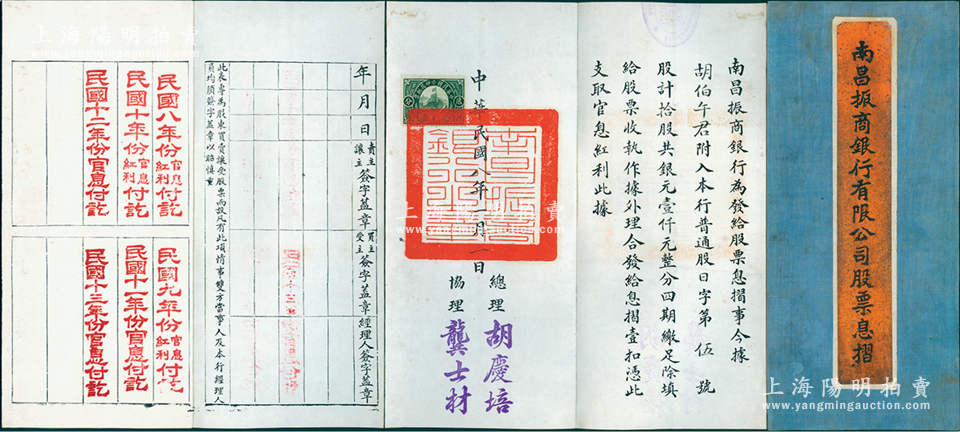 南昌振商銀行有限公司股票息摺
南昌振商銀行為發給股票息摺事今據
胡伯午君附入本行普通股日字第伍號
股計拾股共銀元壹仟元整分四期繳足除填
給股票收執作據外理合發給息摺壹扣憑此
支取官息紅利此據
中華民國八年一月一日
總理 胡慶培
協理 龔士材
年月日 賣主讓主簽字蓋章 買主受主簽字蓋章 經理人簽字蓋章
此表專為股東買賣讓受股票而設凡有此項情事雙方當事人及本行經理人
員均須簽字蓋章以昭慎重
民國八年份官息紅利付訖
民國十年份官息紅利付訖
民國十二年份官息付訖
民國九年份官息紅利付訖
民國十一年份官息付訖
民國十三年份官息付訖
上海陽明拍賣
上海陽明拍賣
上海陽明拍賣
www.yangmingauction.com